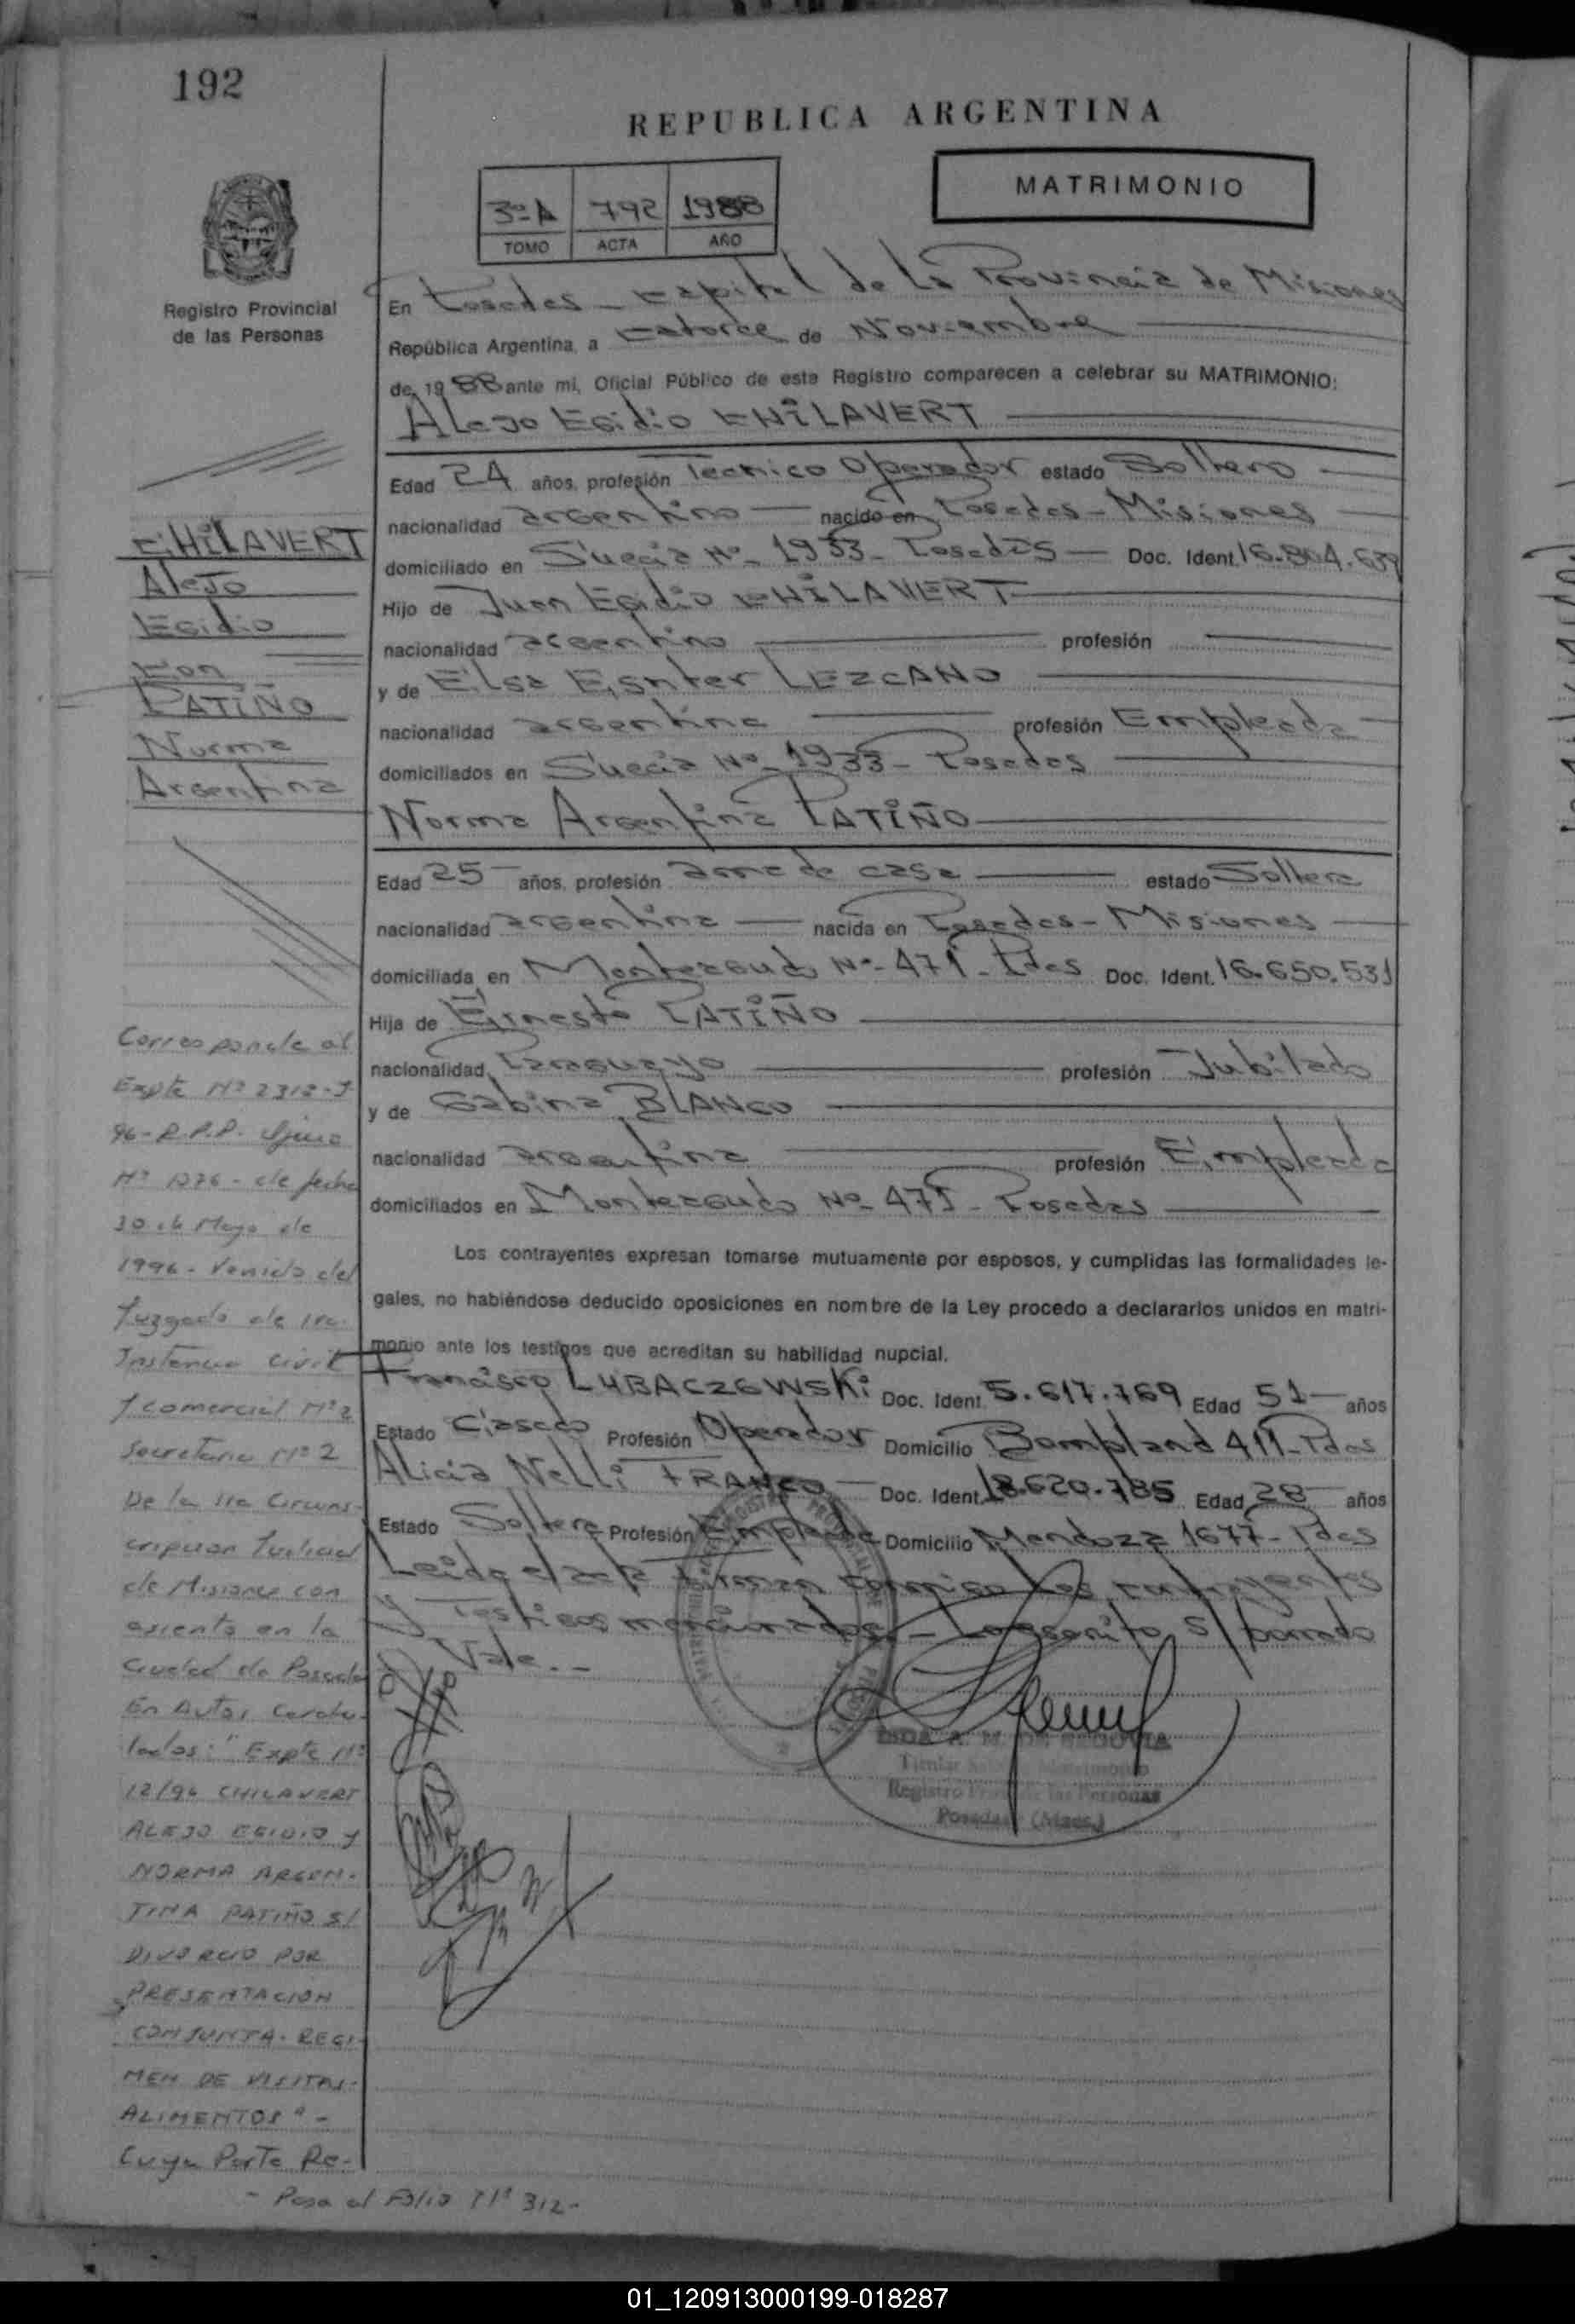 192
REPUBLICA ARGENTINA
MATRIMONIO
3º A 792 1988
TOMO ACTA AÑO
Registro Provincial
de las Personas
En Posadas - Capital de la Provincia de Misiones
República Argentina, a catorce de Noviembre
de 1988 ante mi, Oficial Público de este Registro comparecen a celebrar su MATRIMONIO:
Alejo Egidio CHILAVERT
Edad 24 años, profesión Tecnico Operador estado Soltero
nacionalidad argentino nacido en Posadas - Misiones
domiciliado en Suecia Nº 1933 - Posadas Doc. Ident. 16.804.639
Hijo de Juan Egidio CHILAVERT
nacionalidad argentino profesión
y de Elsa Esnter LEZCANO
nacionalidad argentina profesión Empleada
domiciliados en Suecia Nº 1933 - Posadas
Norma Argentina PATIÑO
Edad 25 años, profesión ama de casa estado Soltera
nacionalidad argentina nacida en Posadas - Misiones
domiciliada en Monteagudo Nº 471 - Pdas Doc. Ident. 16.650.531
Hija de Ernesto PATIÑO
nacionalidad Paraguayo profesión Jubilado
y de Gabina BLANCO
nacionalidad argentina profesión Empleada
domiciliados en Monteagudo Nº 471 - Posadas
Los contrayentes expresan tomarse mutuamente por esposos, y cumplidas las formalidades le-
gales, no habiéndose deducido oposiciones en nombre de la Ley procedo a declararlos unidos en matri-
monio ante los testigos que acreditan su habilidad nupcial.
Francisco LUBACZEWSKi Doc. Ident. 5.617.769 Edad 51 años
Estado Casado Profesión Operador Domicilio Bompland 411 - Pdas
Alicia Nelli FRANCO Doc. Ident. 18.620.785 Edad 28 años
Estado Soltera Profesión Empleada Domicilio Mendoza 1677 - Pdas
Leida el acta firman conmigo los contrayentes
y Testigos mencionados. - Lo escrito s/ borrado
Vale. -
DE SEGOVIA
Titular Matrimonio
Registro Prov. de las Personas
Posadas (Mnes.)
CHILAVERT
Alejo
Egidio
Con
PATIÑO
Norma
Argentina
Corresponde al
Expte Nº 2312-J
96 - R.P.P.
Nº 1276 - de fecha
30 de Mayo de
1996 - Venido del
Juzgado de 1ra.
Instancia Civil
y Comercial Nº 2
Secretaria Nº 2
De la 1ra Circuns-
cripcion Judicial
de Misiones con
asiento en la
Ciudad de Posadas
En Autos Caratu-
lados: "Expte Nº
12/96 CHILAVERT
ALEJO EGIDIO Y
NORMA ARGEN-
TINA PATIÑO S/
DIVORCIO POR
PRESENTACION
CONJUNTA - REGI-
MEN DE VISITAS -
ALIMENTOS" -
Cuya Parte Re-
- Pasa al Folio Nº 312 -
01_120913000199-018287